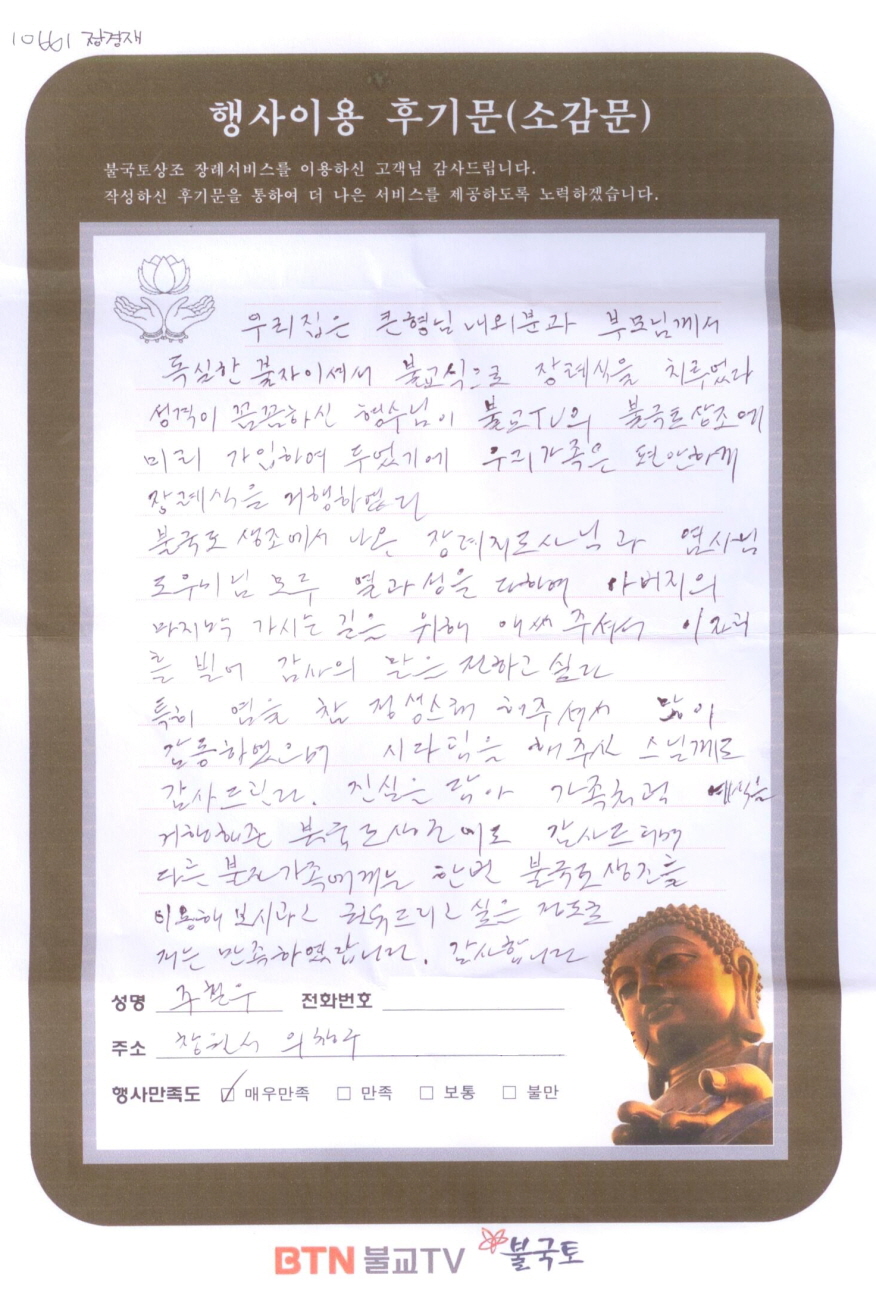 10661 장경재
행사이용 후기문(소감문)
불국토상조 장례서비스를 이용하신 고객님 감사드립니다.
작성하신 후기문을 통하여 더 나은 서비스를 제공하도록 노력하겠습니다.
우리집은 큰형님 내외분과 부모님께서
독실한 불자이셔서 불교식으로 장례식을 치루었다
성격이 꼼꼼하신 형수님이 불교TV의 불국토상조에
미리 가입하여 두었기에 우리가족은 편안하게
장례식을 거행하였다
불국토 상조에서 나온 장례지도사님과 염사님
도우미님 모두 열과 성을 다하여 아버지의
마지막 가시는 길을 위해 애써 주셔서 이자리
를 빌어 감사의 말을 전하고 싶다
특히 염을 참 정성스레 해주셔서 많이
감동하였으며 시다림을 해주신 스님께도
감사드린다. 진심을 담아 가족처럼 예식을
거행해준 불국토상조에도 감사드리며
다른 불자가족에게는 한번 불국토상조를
이용해 보시라고 권유드리고 싶은 정도로
저는 만족하였답니다. 감사합니다
성명 주환우 전화번호
주소 창원시 의창구
행사만족도 ☑ 매우만족 □ 만족 □ 보통 □ 불만
BTN 불교TV 불국토